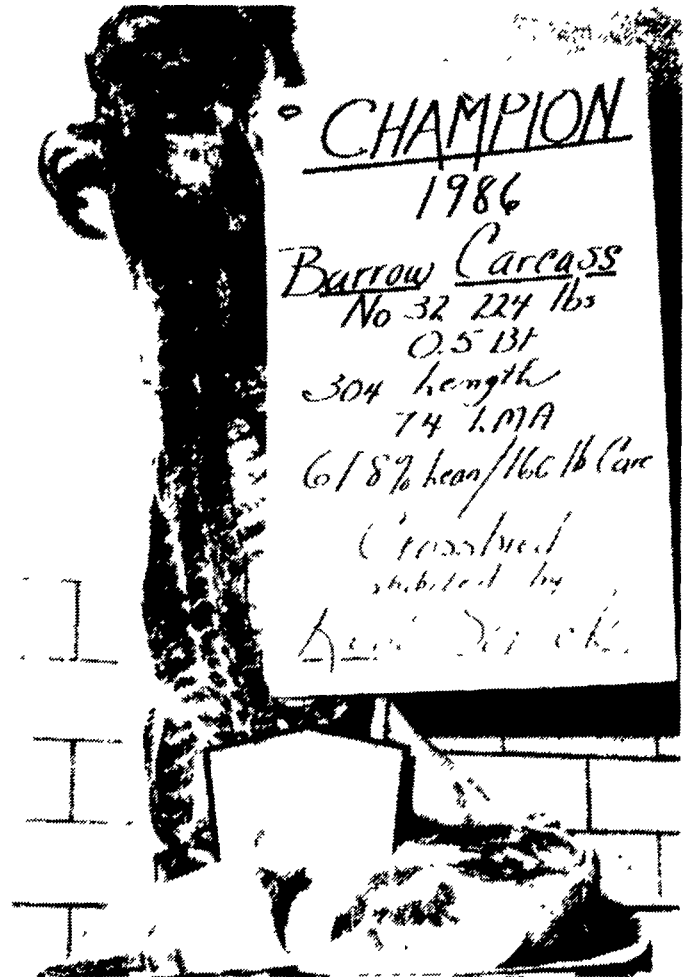 CHAMPION
1986
Barrow Carcass
No 32 224 lbs
0.5 Bf
304 Length
74 LMA
618% Lean/160 lb Carc
Crossbred
exhibited by